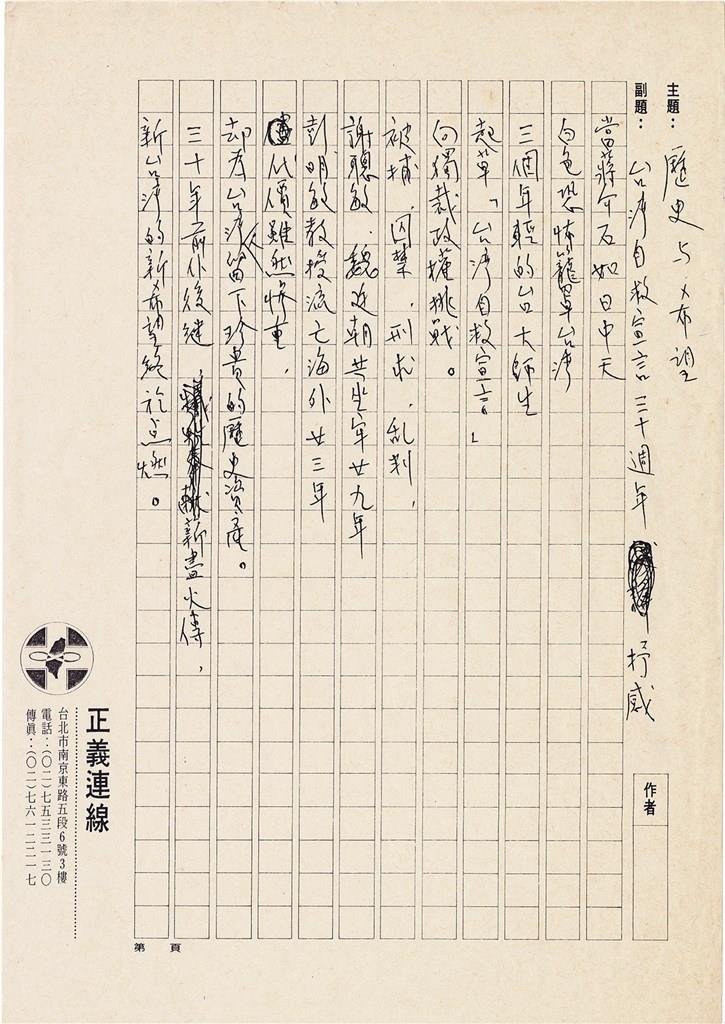 主題：歷史与希望
副題：台湾自救宣言三十週年抒感
當蔣介石如日中天
白色恐怖籠罩台湾
三個年輕的台大師生
起草「台湾自救宣言」
向獨裁政權挑戰。
被捕，囚禁，刑求，乱判，
謝聰敏、魏廷朝共坐牢廿九年
彭明敏教授流亡海外廿三年
代價雖然慘重，
却為台湾人留下珍貴的歷史資產。
三十年前仆後継，薪盡火傳，
新台湾的新希望終於点燃。
作者
第 頁
正義連線
台北市南京東路五段6號3樓
電話：(〇二)七五三三一三〇
傳眞：(〇二)七六一二二一七